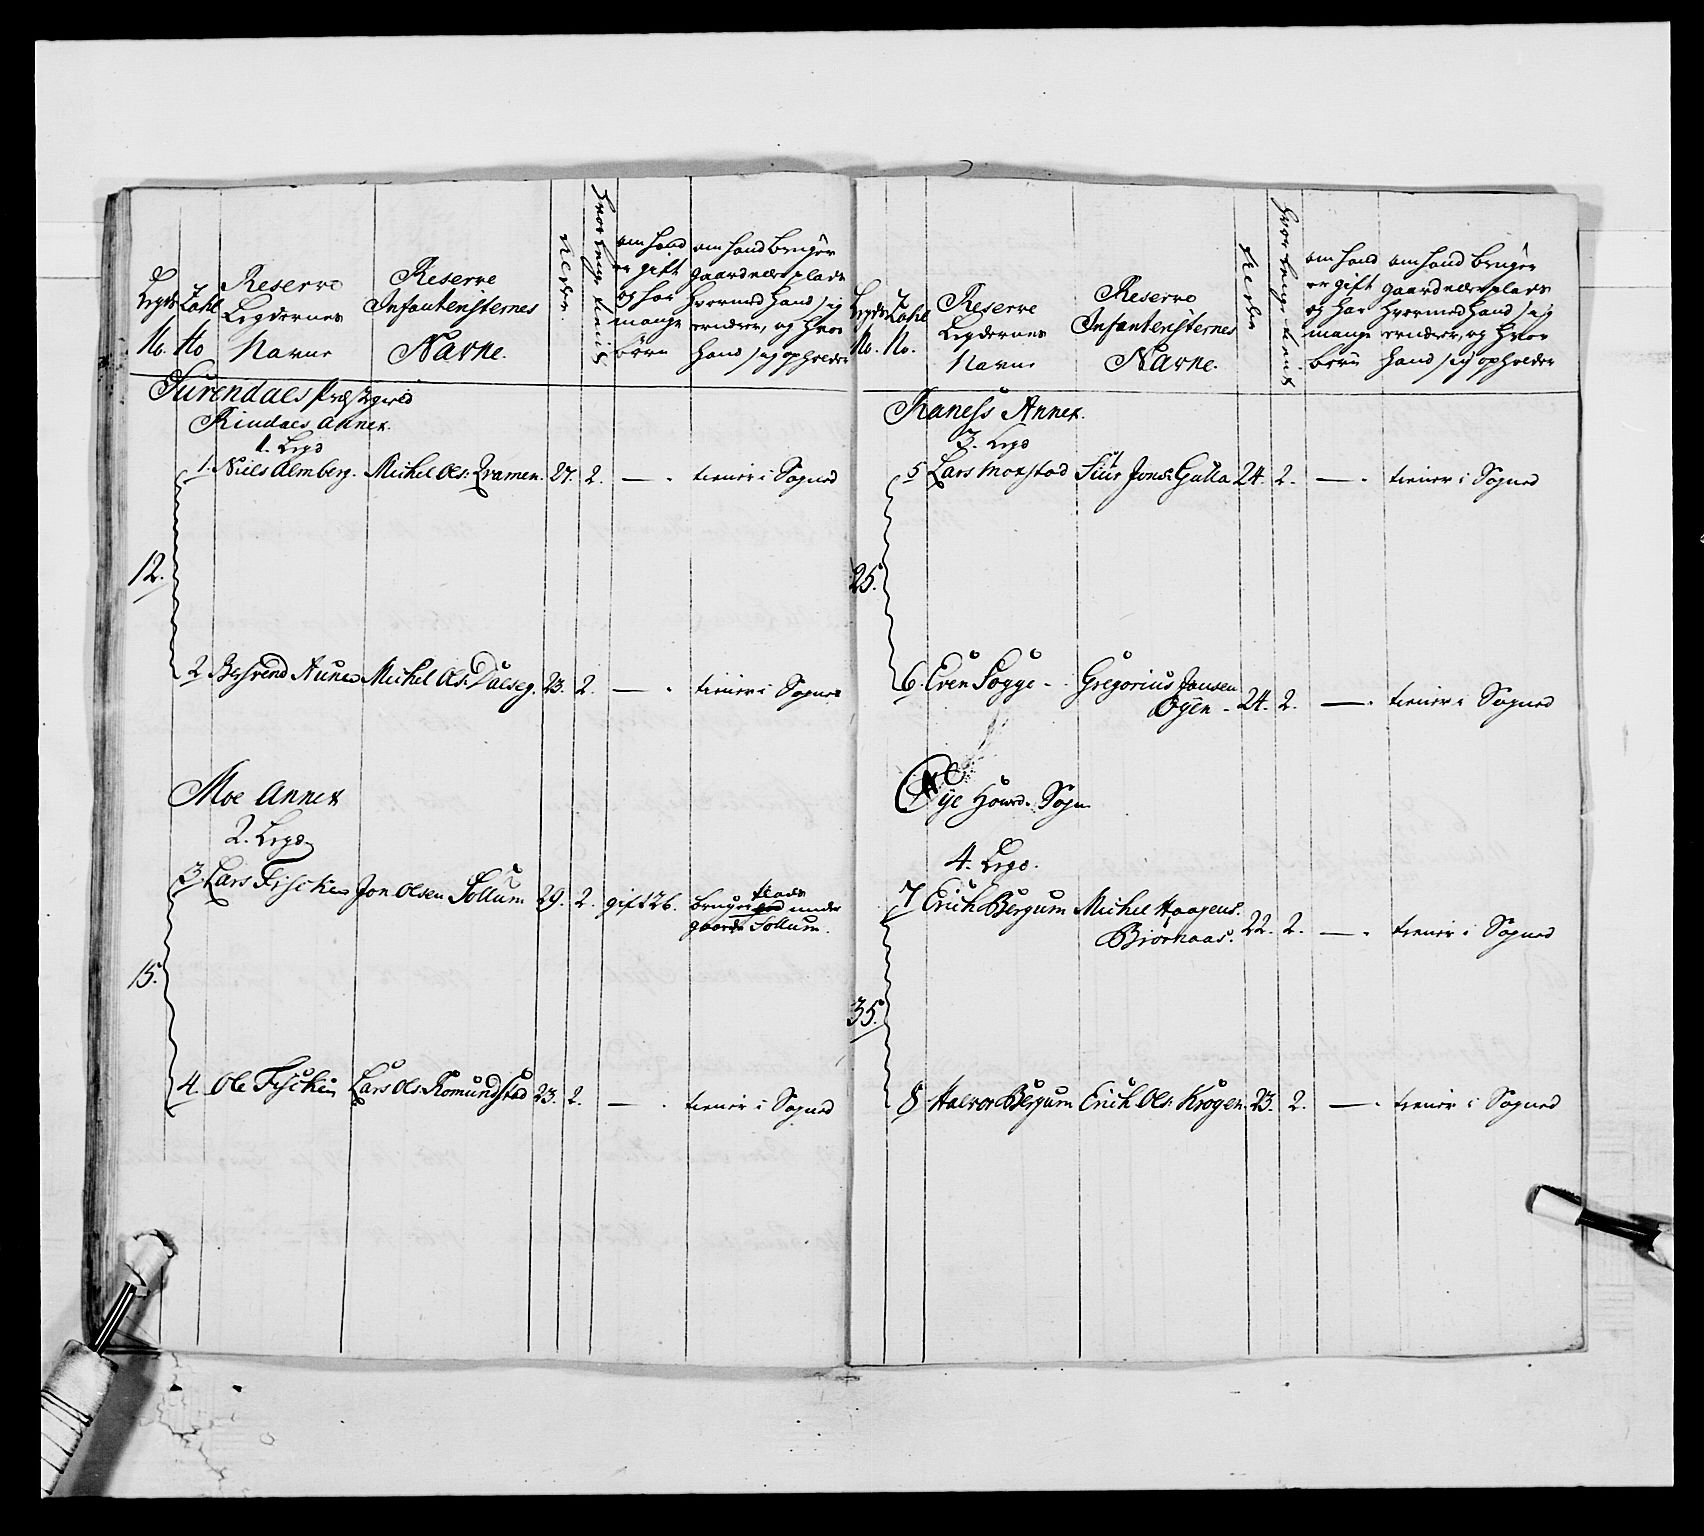 Legds No.
Tahl No
Reserve Legdernes Navne
Reserve Infanteristernes Navne.
hvor lenge tient
om hand er gift og har mange børn
om hand bruger gaard eller plads hvormed hand sig ernærer, og hvor hand sig opholder
Surendals Præstegield
Rindals Annex.
1. Legd
12.
1. Niels Almberg. Michel Ols: Qvamen. 27. 2. — . tiener i Sognet
2 Michel Ols: Dalseg. 23. 2. — . tiener i Sognet
Moe Annex
2. Legd.
15.
3. Lars Fiske Jon Olsen Sollum 29. 2. gift 26. bruger plads under
gaarden Sollum.
4. Ole Fiske Lars Ols: Romundstad 23. 2. — . tiener i Sognet
Legds No.
Tahl No.
Reserve Legdernes Navne
Reserve Infanteristernes Navne.
hvor lenge tient
om hand er gift og har mange børn
om hand bruger gaard eller plads hvormed hand sig ernærer, og hvor hand sig opholder
Raness Annex.
3. Legd
25.
5 Lars Moxstad Siur Jons: Gulla 24. 2. — . tiener i Sognet
6. Even Sogge - Gregorius Jonsen
Øÿen - 24. 2. — . tiener i Sognet
Øÿe Howed Sogn
4. Legd.
35.
7 Erich Bergum Michel Haagens:
Biørnaas. 22. 2. — . tiener i Sognet
8 Halvor Bergum Erich Ols: Krogen 23. 2. — . tiener i Sognet